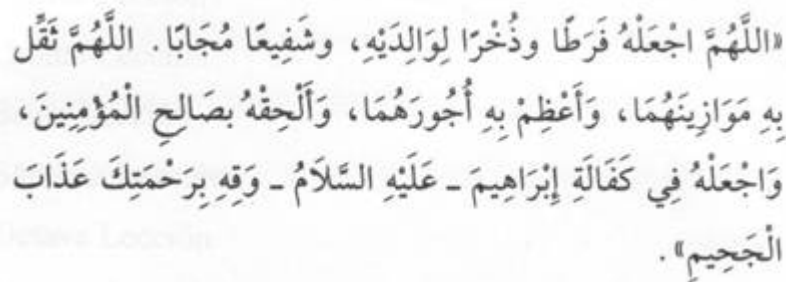 «اللَّهُمَّ اجْعَلْهُ فَرَطًا وذُخْرًا لِوَالِدَيْهِ، وشَفِيعًا مُجَابًا. اللَّهُمَّ ثَقِّل
بِهِ مَوَازِينَهُمَا، وَأَعْظِمْ بِهِ أُجُورَهُمَا، وَأَلْحِقْهُ بصَالِحِ الْمُؤْمِنِينَ،
وَاجْعَلْهُ فِي كَفَالَةِ إِبْرَاهِيمَ ـ عَلَيْهِ السَّلَامُ ـ وَقِهِ بِرَحْمَتِكَ عَذَابَ
الْجَحِيمِ».